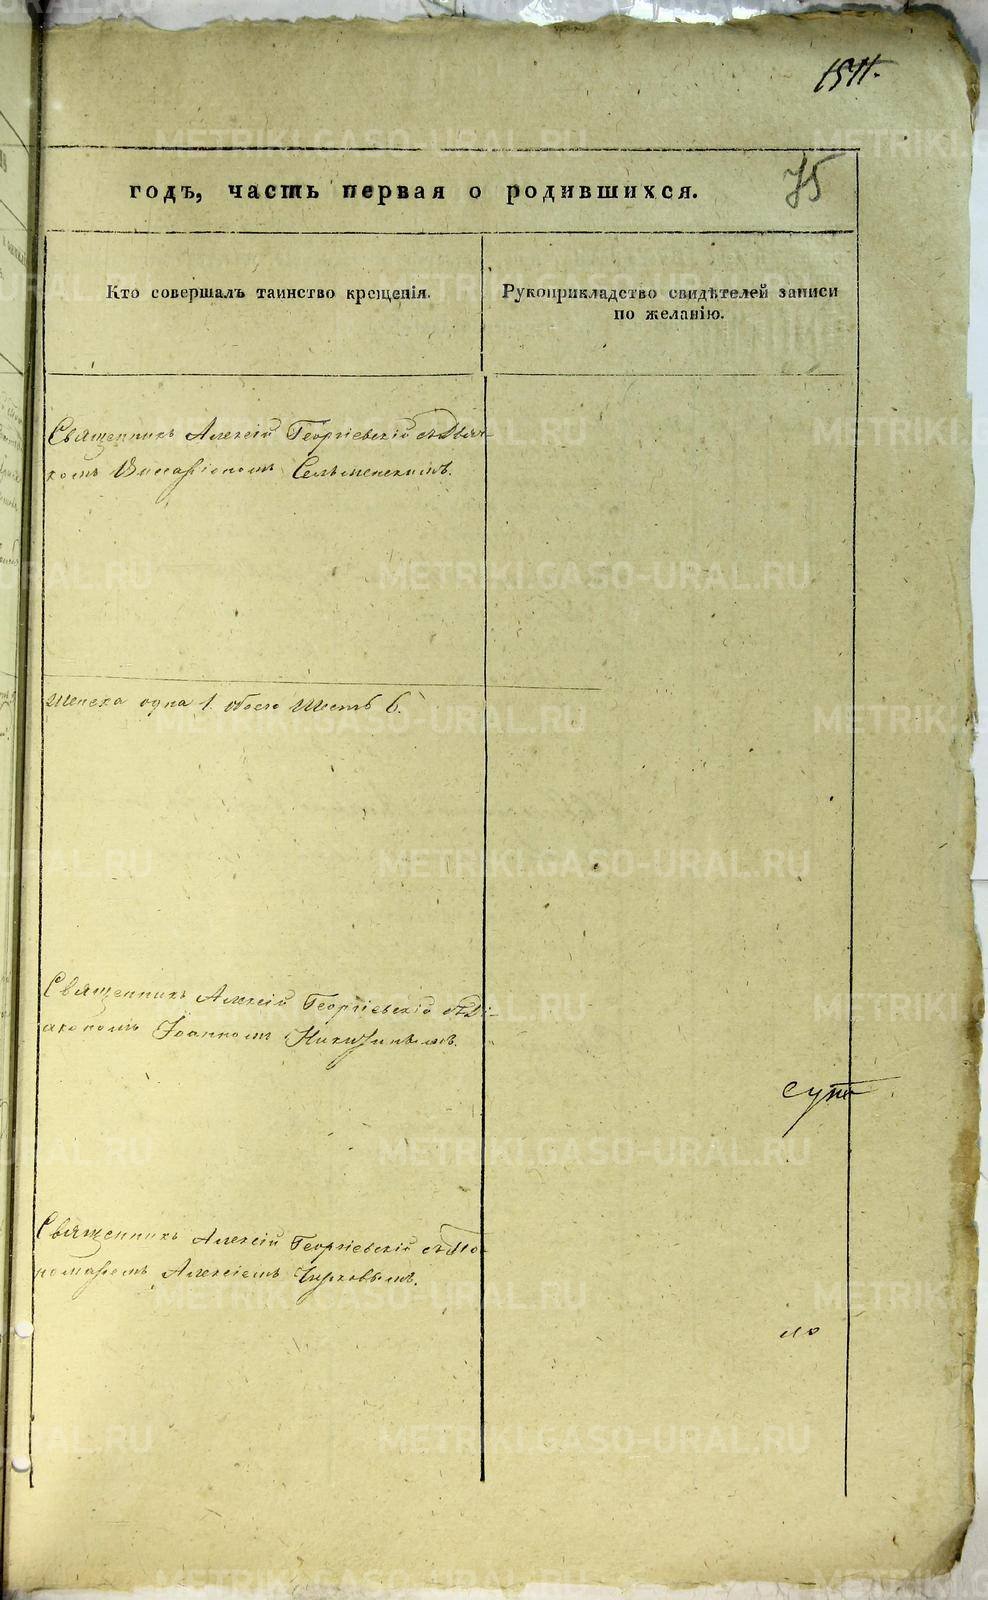 1511.
75
годъ, часть первая о родившихся.
Кто совершалъ таинство крещенія.
Рукоприкладство свидѣтелей записи
по желанію.
Священникъ Алексій Георгіевскій съ Дьяч-
комъ Виссаріономъ Сельменскимъ.
Женска одна 1. обоего шесть 6.
Священникъ Алексій Георгіевскій съ Ді-
акономъ Іоанномъ Никитинымъ.
Священникъ Алексій Георгіевскій съ По-
номаремъ Алексіемъ Чирковымъ.
METRIKI.GASO-URAL.RU